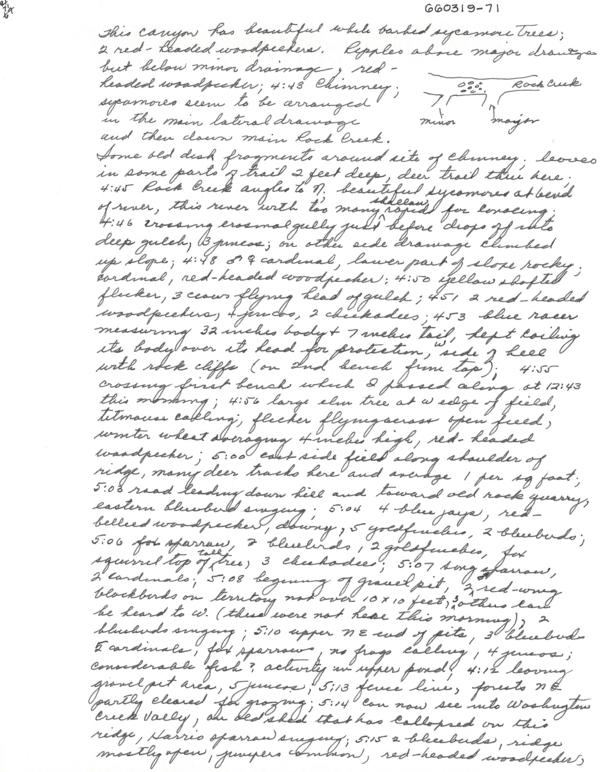 GG0319-71
This canyon has beautiful white barked sycamore trees;
2 red-headed woodpeckers. Ripples above major drainage
but below minor drainage, red-
headed woodpecker; 4:43 Chimney;
sycamores seem to be arranged
in the main lateral drainage
and then down main Rock Creek.
Rock Creek
minor
major
Some old dish fragments around site of chimney, leaves
in some parts of trail 2 feet deep, deer trail thru here;
4:45 Rock Creek angles to N, beautiful sycamores at bend
of river, this river with too many shallow rapids for canoeing;
4:46 crossing erosional gully just before drops off into
deep gulch, 3 juncos; on other side drainage climbed
up slope; 4:48 ♂ ♀ cardinal, lower part of slope rocky;
cardinal, red-headed woodpecker; 4:50 yellow shafted
flicker, 3 crows flying head of gulch; 4:51 2 red-headed
woodpeckers, 4 juncos, 2 chickadees; 4:53 blue racer
measuring 32 inches body & 7 inches tail, kept coiling
its body over its head for protection, W side of hill
with rock cliffs (on 2nd bench from top); 4:55
crossing first bench which I passed along at 12:43
this morning; 4:56 large elm tree at W edge of field,
titmouse calling, flicker flying across open field,
winter wheat averaging 4 inches high, red-headed
woodpecker; 5:00 east side field along shoulder of
ridge, many deer tracks here and average 1 per sq foot;
5:03 road leading down hill and toward old rock quarry,
eastern bluebird singing; 5:04 4 blue jays, red-
bellied woodpecker, downy, 5 goldfinches, 2 bluebirds;
5:06 fox sparrow, 2 bluebirds, 2 goldfinches, fox
squirrel top of tall tree, 3 chickadees; 5:07 song sparrow,
2 cardinals; 5:08 beginning of gravel pit, 2 red-wing
blackbirds on territory not over 10 x 10 feet, 3 others can
be heard to W. (these were not here this morning), 2
bluebirds singing; 5:10 upper NE end of pits, 3 bluebirds
5 cardinals, fox sparrows, no frogs calling, 4 juncos;
considerable fish? activity in upper pond, 4:12 leaving
gravel pit area, 5 juncos; 5:13 fence line, forests NE
partly cleared for grazing; 5:14 can now see into Washington
Creek Valley, an old shed that has collapsed on this
ridge, Harris sparrow singing; 5:15 2 bluebirds, ridge
mostly open, junipers common, red-headed woodpecker;